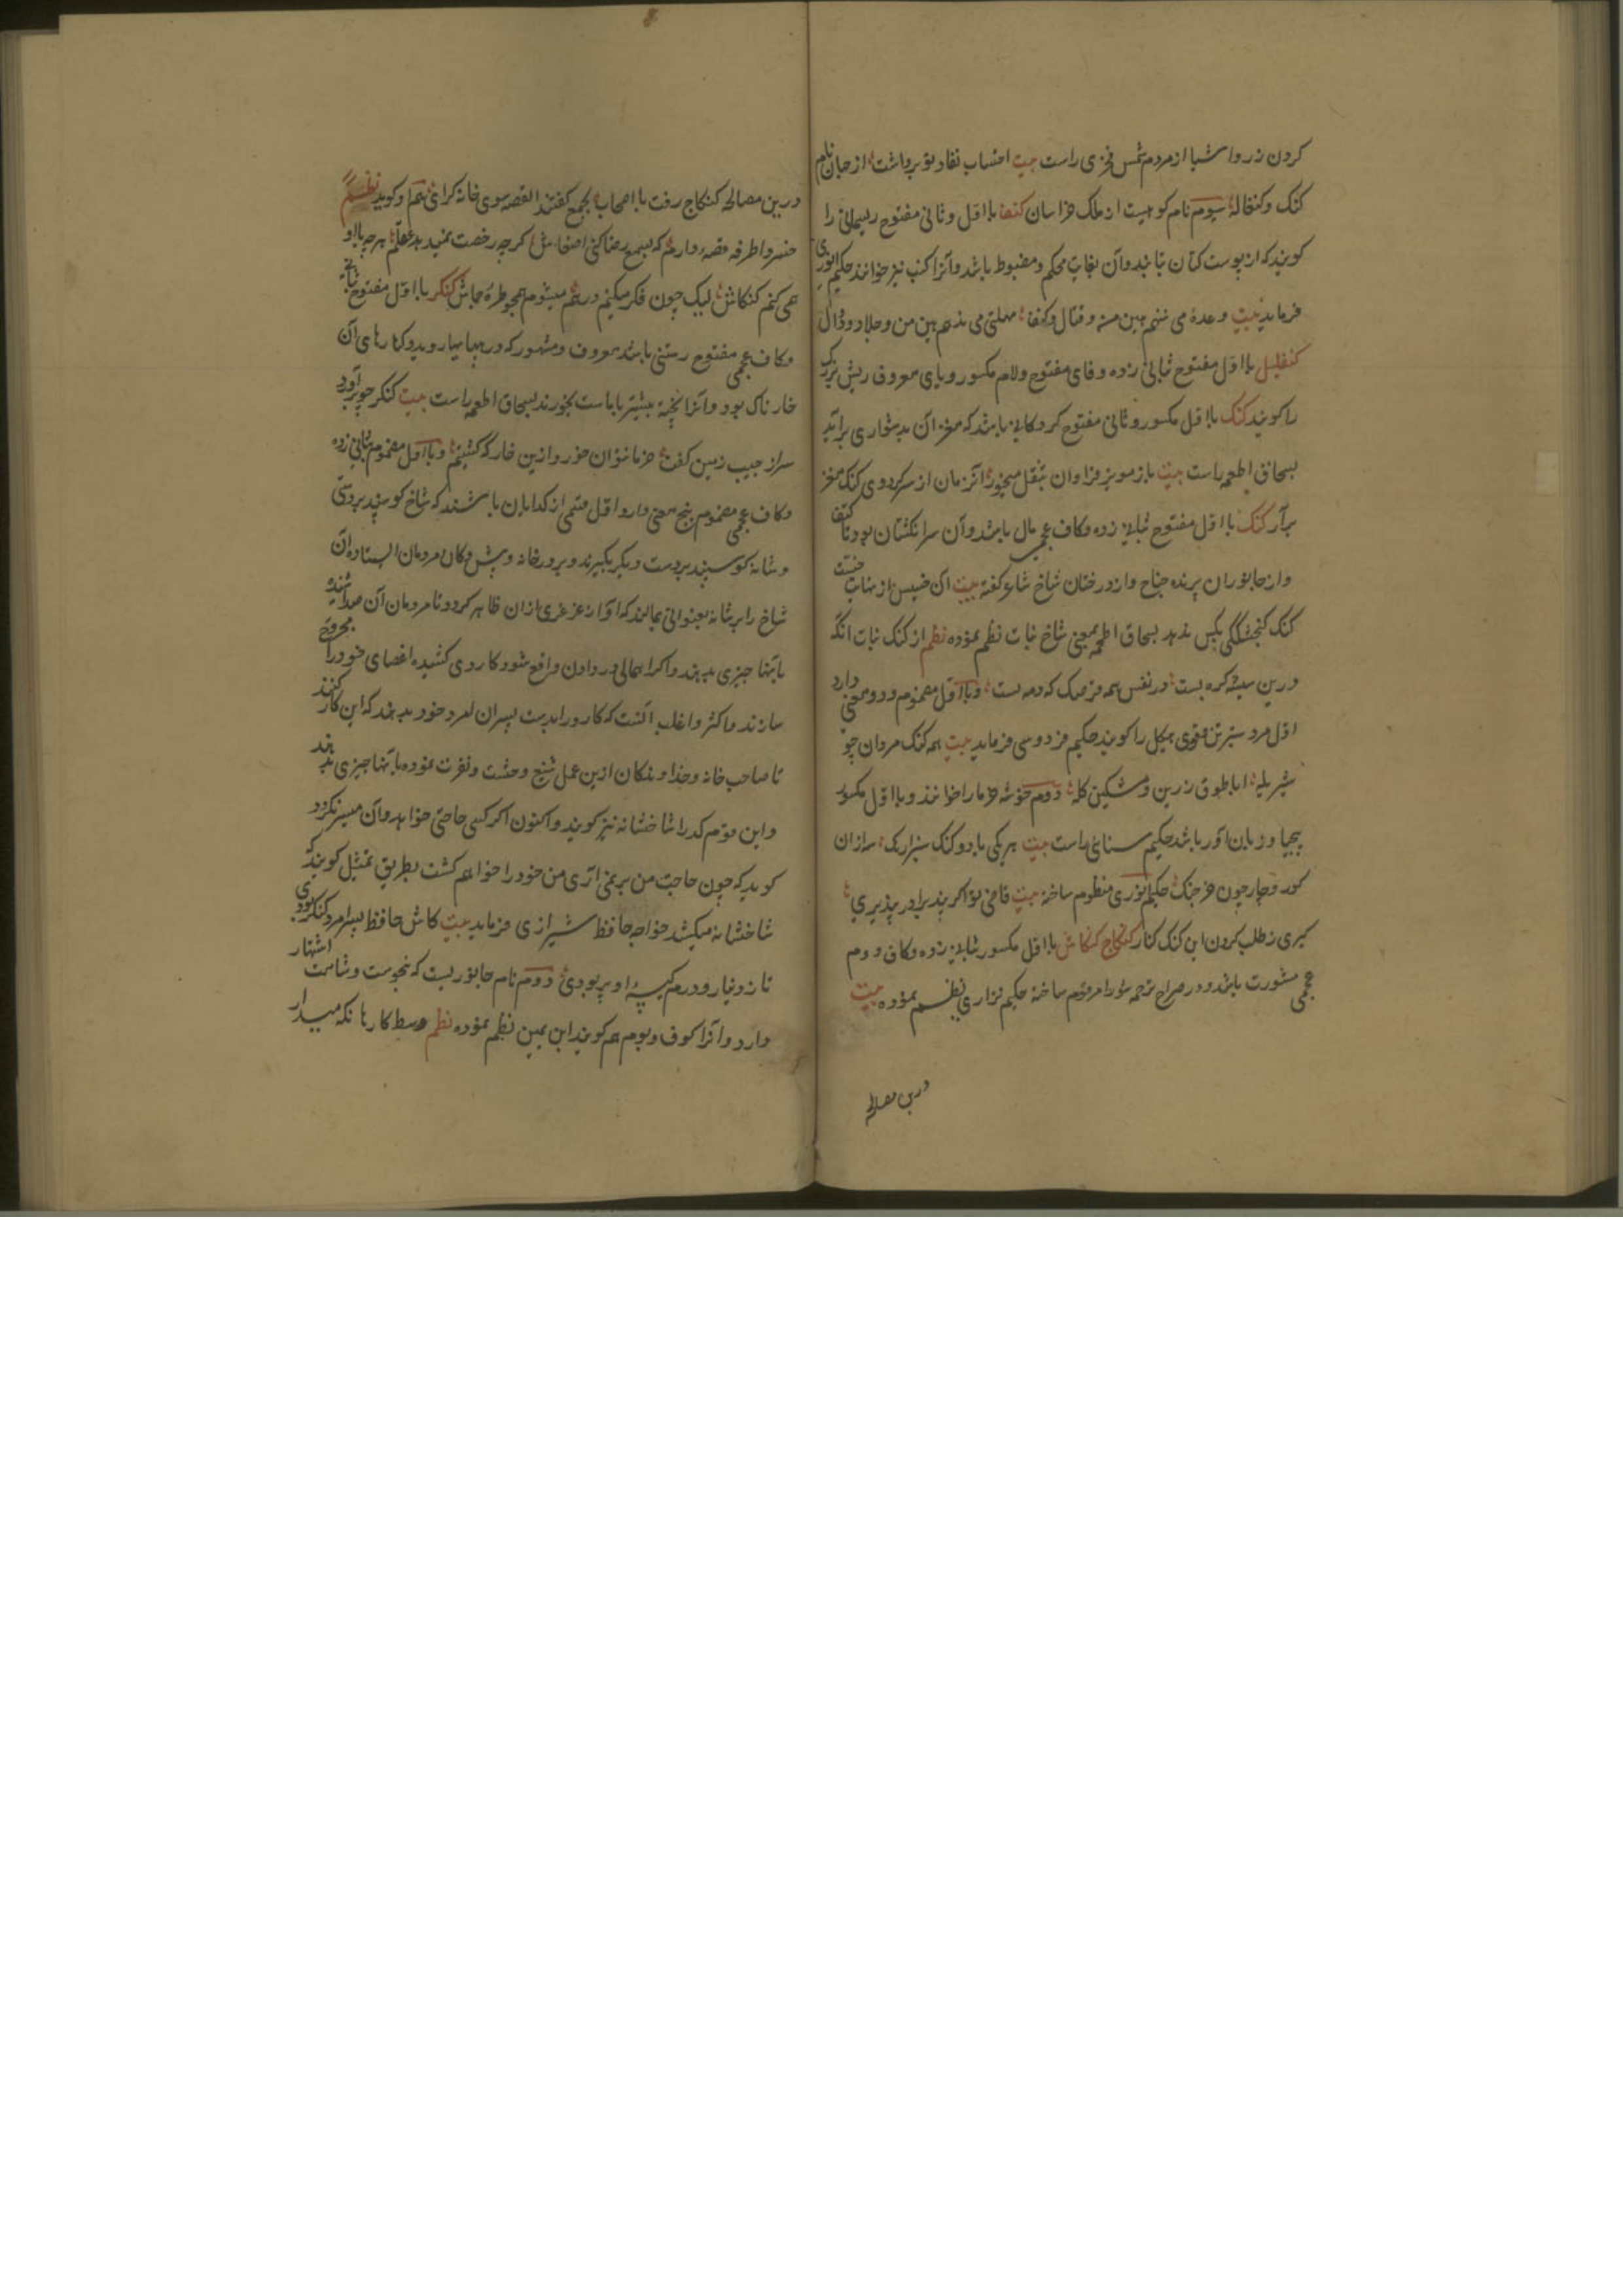 کردن زر و اشیا از مردم شمس فخری راست بیت احتساب نفاد تو برداشت از جهان نام
کنک و کنغاله سیوم نام کوهیست از ملک خراسان کنفا با اول و ثانی مفتوح ریسمانی را
کویند که از پوست کتان تابند و آن بغایت محکم و مضبوط باشد و آنرا کنب نیز خوانند حکیم انوری
فرماید بیت وعدهٔ می ننهم بین من و قتال و کنفا مهلتی می ندهم بین من و جلاد و دوال
کنفلیل با اول مفتوح بثانی زده و فای مفتوح و لام مکسور و یای معروف ریش بزرک
را کویند کنک با اول مکسور و ثانی مفتوح کردکانی باشد که مغز آن بدشواری برآید
بسحاق اطعمه راست بیت باز مویز فراوان بنقل میخور آنزمان از سر کردوی کنک مغز
برآر کنک با اول مفتوح بثانی زده و کاف عجمی بال باشد و آن سر انکشتان بود تا کتف
و از جانوران پرنده جناح و از درختان شاخ شاعر کفته بیت آن خسیس از نهایت خست
کنک کنجشککی بکس ندهد بسحاق اطعمه بمعنی شاخ نبات نظم نموده نظم از کنک نبات آنکه
درین بیشه کره بست در نفس همه قرصک که دمه بست و با اول مضموم دو معنی دارد
اول مرد ستبر تن قوی هیکل را کویند حکیم فردوسی فرماید بیت همه کنک مردان چو
شیر یله ابا طوق زرین و مشکین کله دوم خوشه خرما را خوانند و با اول مکسور
بیحیا و زبان آور باشد حکیم سنائی راست بیت هر یکی با دو کنک سبزاریک سازان
کور و چار چون خرچنک حکیم انوری منظوم ساخته بیت قاضی تو اکر بند برادر پذیری
کیری ز طلب کردن این کنک کنار کنکاج کنکاش با اول مکسور بثانی زده و کاف دوم
عجمی مشورت باشد و در صراح ترجمه شورا مرقوم ساخته حکیم نزاری نظم نموده بیت
درین مصالح
درین مصالح کنکاج رفت با اصحاب بجمع کفتند القصه سوی خانه کرای هم او کوید نظم
خسروا طرفه قصه دارم که بسمع رضا کنی اصغاش کرچه رخصت نمیدهد عقلم هرچه با او
همی کنم کنکاش لیک چون فکر میکنم درهم میشوم همچو طره جماش کنکر با اول مفتوح بثانی
و کاف عجمی مفتوح رستنی باشد معروف و مشهور که در بهار روید و کنارهای آن
خارناک بود و آنرا پخته بیشتر با ماست بخورند بسحاق اطعمه راست بیت کنکر چو برآورد
سر از جیب زمین کفت خرما نتوان خورد ازین خار که کشتیم و با اول مضموم بثانی زده
و کاف عجمی مضموم پنج معنی دارد اول قسمی از کدایان باشند که شاخ کوسپند بردستی
و شانه کوسپند بردست دیکر بکیرند و بر در خانه و پیش دکان مردمان ایستاده آن
شاخ را بر شانه بعنوانی بمالند که آواز غرغری ازان ظاهر کردد تا مردمان آن صدا شنیده
بآنها چیزی بدهند و اکر اهمالی در دادن واقع شود کاردی کشیده اعضای خود را مجروح
سازند و اکثر و اغلب آنست که کارد را بدست پسران امرد خود بدهند که این کار کنند
تا صاحب خانه و خداوند دکان ازین عمل شنیع وحشت و نفرت نموده بآنها چیزی بدهند
و این قوم کدا را شاخشانه نیز کویند و اکنون اکر کسی حاجتی خواهد و آن میسر نکردد
کوید که چون حاجت من بر نمی آری من خود را خواهم کشت بطریق تمثیل کویند که
شاخشانه میکشد خواجه حافظ شیرازی فرماید بیت کاش حافظ پسر امرد کنکر بودی
تا زر و دینار و درم کیسهٔ او پر بودی دوم نام جانوریست که بنحوست و شامت اشتهار
دارد و آنرا کوف و بوم هم کویند ابن یمین نظم نموده نظم وسط کارها نکه میدار